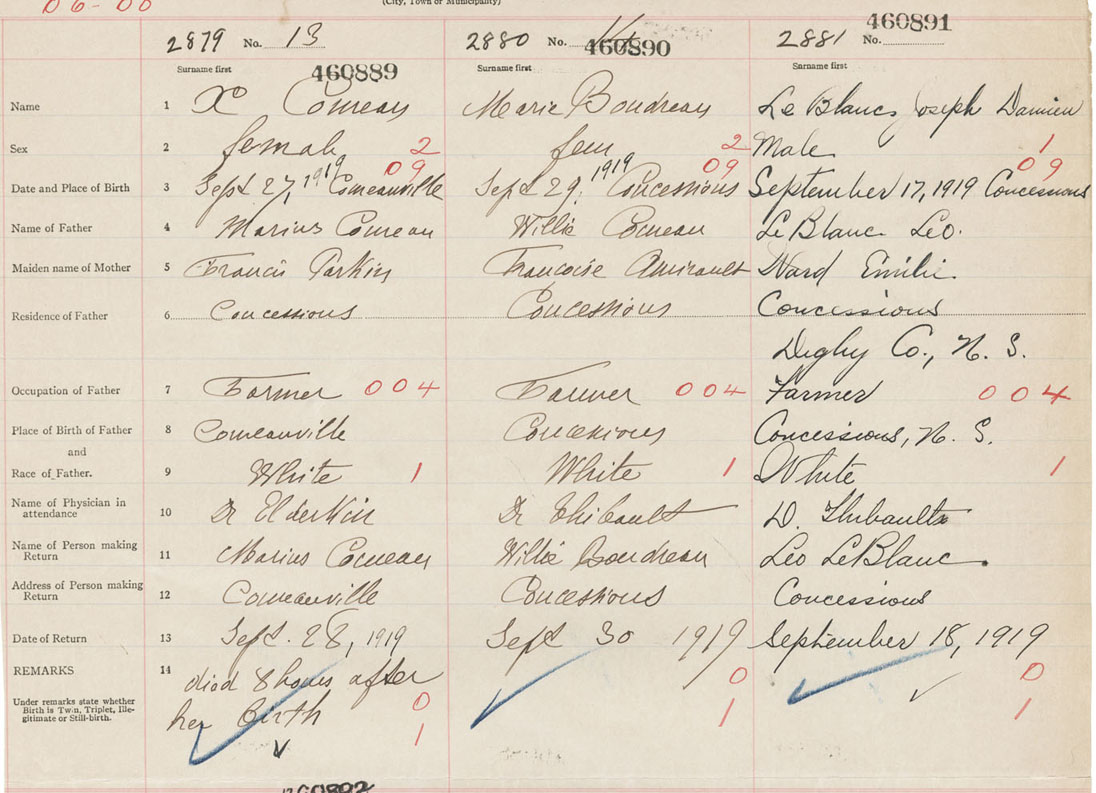 06-00
(City, Town or Municipality)
2879 No. 13 2880 No. 14 2881 No.
460889 460890 460891
Surname first Surname first Surname first
Name 1 Xo Comeau Marie Boudreau Le Blanc, Joseph Damien
Sex 2 female 2 fem 2 Male 1
09 09 09
Date and Place of Birth 3 Sept 27, 1919 Comeauville Sept 29, 1919 Concessions September 17, 1919 Concessions
Name of Father 4 Marius Comeau Willie Comeau Le Blanc Leo.
Maiden name of Mother 5 Francis Parkin Francoise Amirault Ward Emilie
Residence of Father 6 Concessions Concessions Concessions
Digby Co., N. S.
Occupation of Father 7 Farmer 004 Farmer 004 Farmer 004
Place of Birth of Father 8 Comeauville Concessions Concessions, N. S.
and
Race of Father. 9 White 1 White 1 White 1
Name of Physician in
attendance 10 Dr Elderkin Dr Thibault D. Thibault
Name of Person making
Return 11 Marius Comeau Willie Boudreau Leo LeBlanc.
Address of Person making
Return 12 Comeauville Concessions Concessions
Date of Return 13 Sept. 28, 1919 Sept 30 1919 September 18, 1919
REMARKS 14 died 8 hours after 0 0
Under remarks state whether
Birth is Twin, Triplet, Ille-
gitimate or Still-birth. her birth 0 1 1
1